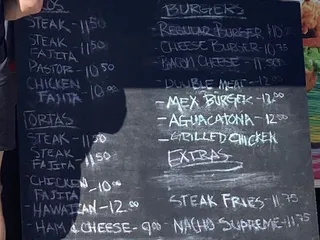 STEAK - 11.50
STEAK
FAJITA
PASTOR - 10.50
CHICKEN
FAJITA 10.00
TORTAS
STEAK - 11.50
STEAK
FAJITA 11.50
CHICKEN
FAJITA - 10.00
HAWAIIAN - 12.00
HAM & CHEESE - 9.00
BURGERS
- REGULAR BURGER
- CHEESE BURGER - 10.75
- BACON CHEESE - 11.50
DOUBLE MEAT - 12.00
- MEX BURGER - 12.00
- AGUACATONA - 12.00
- GRILLED CHICKEN
EXTRAS
STEAK FRIES - 11.75
NACHO SUPREME - 11.75